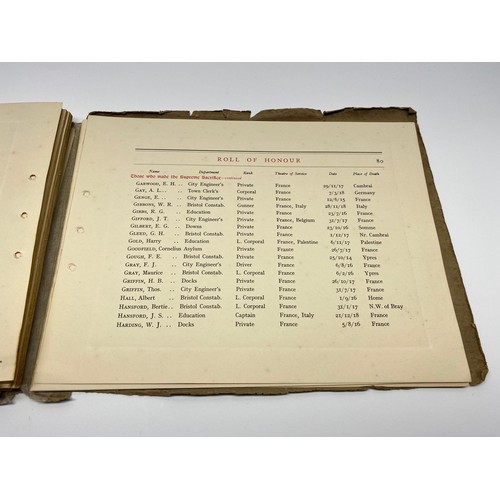 ROLL OF HONOUR 80
Name Department Rank Theatre of Service Date Place of Death
Those who made the Supreme Sacrifice—continued
GARWOOD, E. H. .. City Engineer's Private France 29/11/17 Cambrai
GAY, A. L... .. Town Clerk's Corporal France 7/3/18 Germany
GENGE, E... .. City Engineer's Private France 12/6/15 France
GIBBONS, W. R. .. Bristol Constab. Gunner France, Italy 28/11/18 Italy
GIBBS, R. G. .. Education Private France 23/7/16 France
GIFFORD, J. T. .. City Engineer's Private France, Belgium 31/7/17 France
GILBERT, E. G. .. Downs Private France 23/10/16 Somme
GLEED, G. H. .. Bristol Constab. Private France 20/11/17 Nr. Cambrai
GOLD, Harry .. Education L. Corporal France, Palestine 6/11/17 Palestine
GOODFIELD, Cornelius Asylum Private France 26/7/17 France
GOUGH, F. E. .. Bristol Constab. Private France 25/10/14 Ypres
GRAY, F. J. .. City Engineer's Driver France 6/8/16 France
GRAY, Maurice .. Bristol Constab. L. Corporal France 6/2/16 Ypres
GRIFFIN, H. B. .. Docks Private France 26/10/17 France
GRIFFIN, Thos. .. City Engineer's Private France 31/7/17 France
HALL, Albert .. Bristol Constab. L. Corporal France 1/9/16 Home
HANSFORD, Bertie.. Bristol Constab. L. Corporal France 31/1/17 N.W. of Bray
HANSFORD, J. S. .. Education Captain France, Italy 21/12/18 France
HARDING, W. J. .. Docks Private France 5/8/16 France